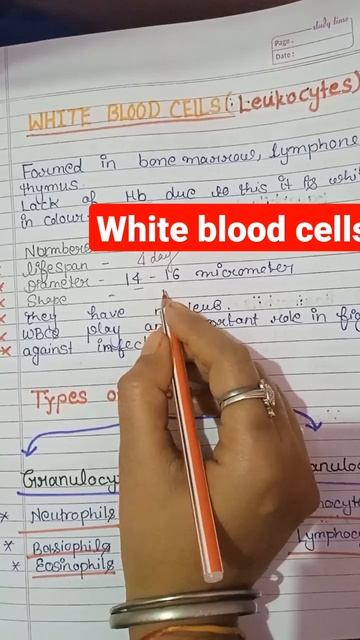 study time
Page:
Date:
WHITE BLOOD CELLS (Leukocytes)
Formed in bone marrow, lymphone
thymus.
Lack of Hb due to this it is whit
in colour
White blood cells
Nombers
lifespan - 4 day
Diameter - 14 - 16 micrometer
Shape -
They have
WBCs play an important role in fig
against infec
Types o
Granulocy
anuloc
* Neutrophils
nocyte
* Basiophils
Lymphoc
* Eosinophils